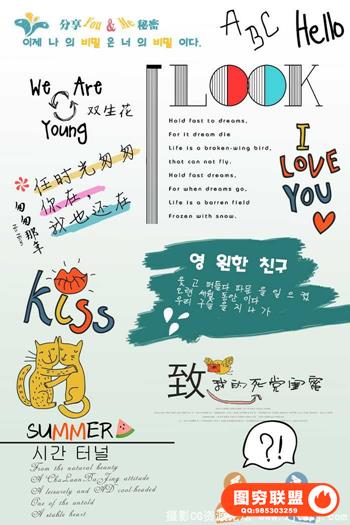 分享 You & Me 秘密
이제 나 의 비밀 은 너 의 비밀 이다.
ABC Hello
We Are
Young
双生花
LOOK
Hold fast to dreams,
For it dream die
Life is a broken-wing bird,
that can not fly.
Hold fast dreams,
For when dreams go,
Life is a barren field
Frozen with snow.
I
LOVE
YOU
任时光匆匆
你在,
我也还在
匆匆那年
영 원한 친구
kiss
致 我的死党闺密
SUMMER
시간 터널
From the natural beauty
A leisurely and AD cool-headed
One of the untold
A stable heart
?!
图穷联盟
QQ:985303259